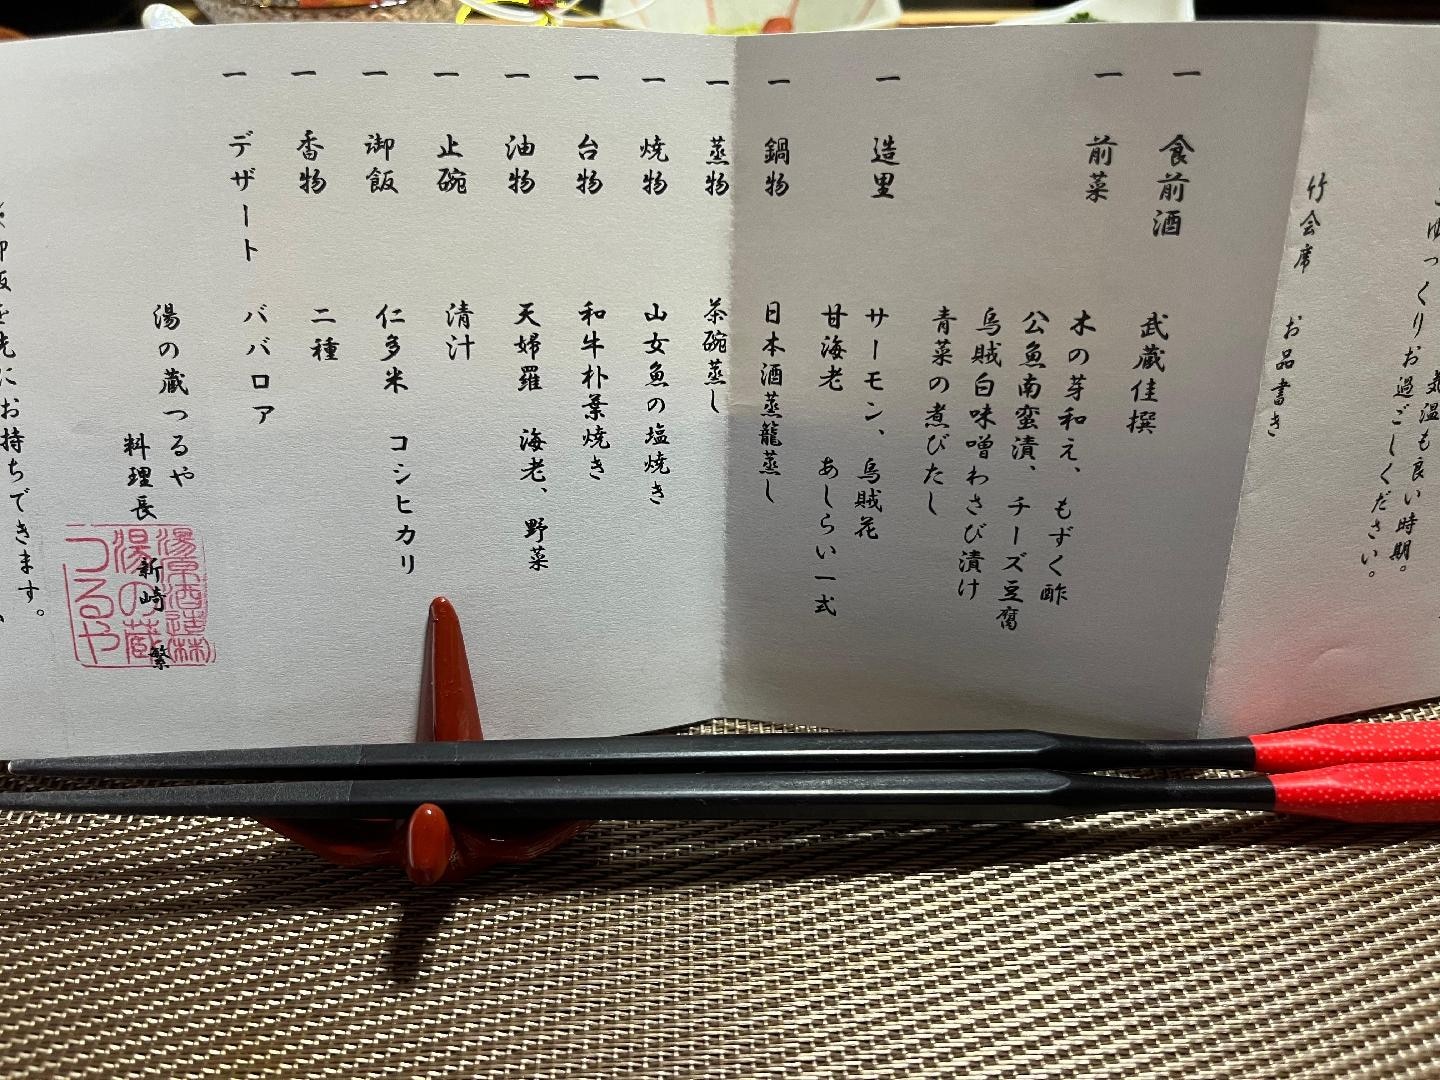 ゆっくりお過ごしください。
気温も良い時期。
竹会席 お品書き
一 食前酒 武蔵佳撰
一 前菜 木の芽和え、もずく酢
公魚南蛮漬、チーズ豆腐
烏賊白味噌わさび漬け
青菜の煮びたし
一 造里 サーモン、烏賊花
甘海老 あしらい一式
一 鍋物 日本酒蒸籠蒸し
一 蒸物 茶碗蒸し
一 焼物 山女魚の塩焼き
一 台物 和牛朴葉焼き
一 油物 天婦羅 海老、野菜
一 止碗 清汁
一 御飯 仁多米 コシヒカリ
一 香物 二種
一 デザート ババロア
湯の蔵つるや
料理長 新崎 繁
湯原酒造㈱
湯の蔵
つるや
御飯を先にお持ちできます。